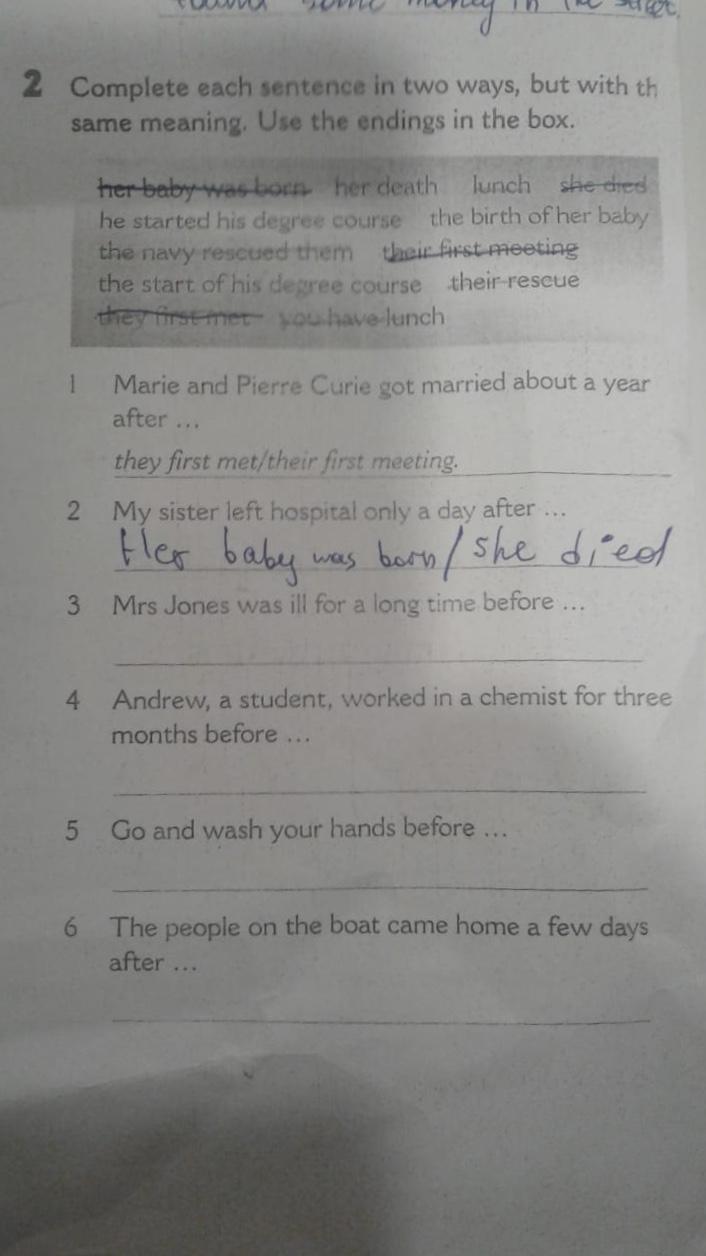 some money in the street.
2 Complete each sentence in two ways, but with th
same meaning. Use the endings in the box.
her baby was born her death lunch she died
he started his degree course the birth of her baby
the navy rescued them their first meeting
the start of his degree course their rescue
they first met you have lunch
1 Marie and Pierre Curie got married about a year
after ...
they first met/their first meeting.
2 My sister left hospital only a day after ...
Her baby was born/she died
3 Mrs Jones was ill for a long time before ...
4 Andrew, a student, worked in a chemist for three
months before ...
5 Go and wash your hands before ...
6 The people on the boat came home a few days
after ...